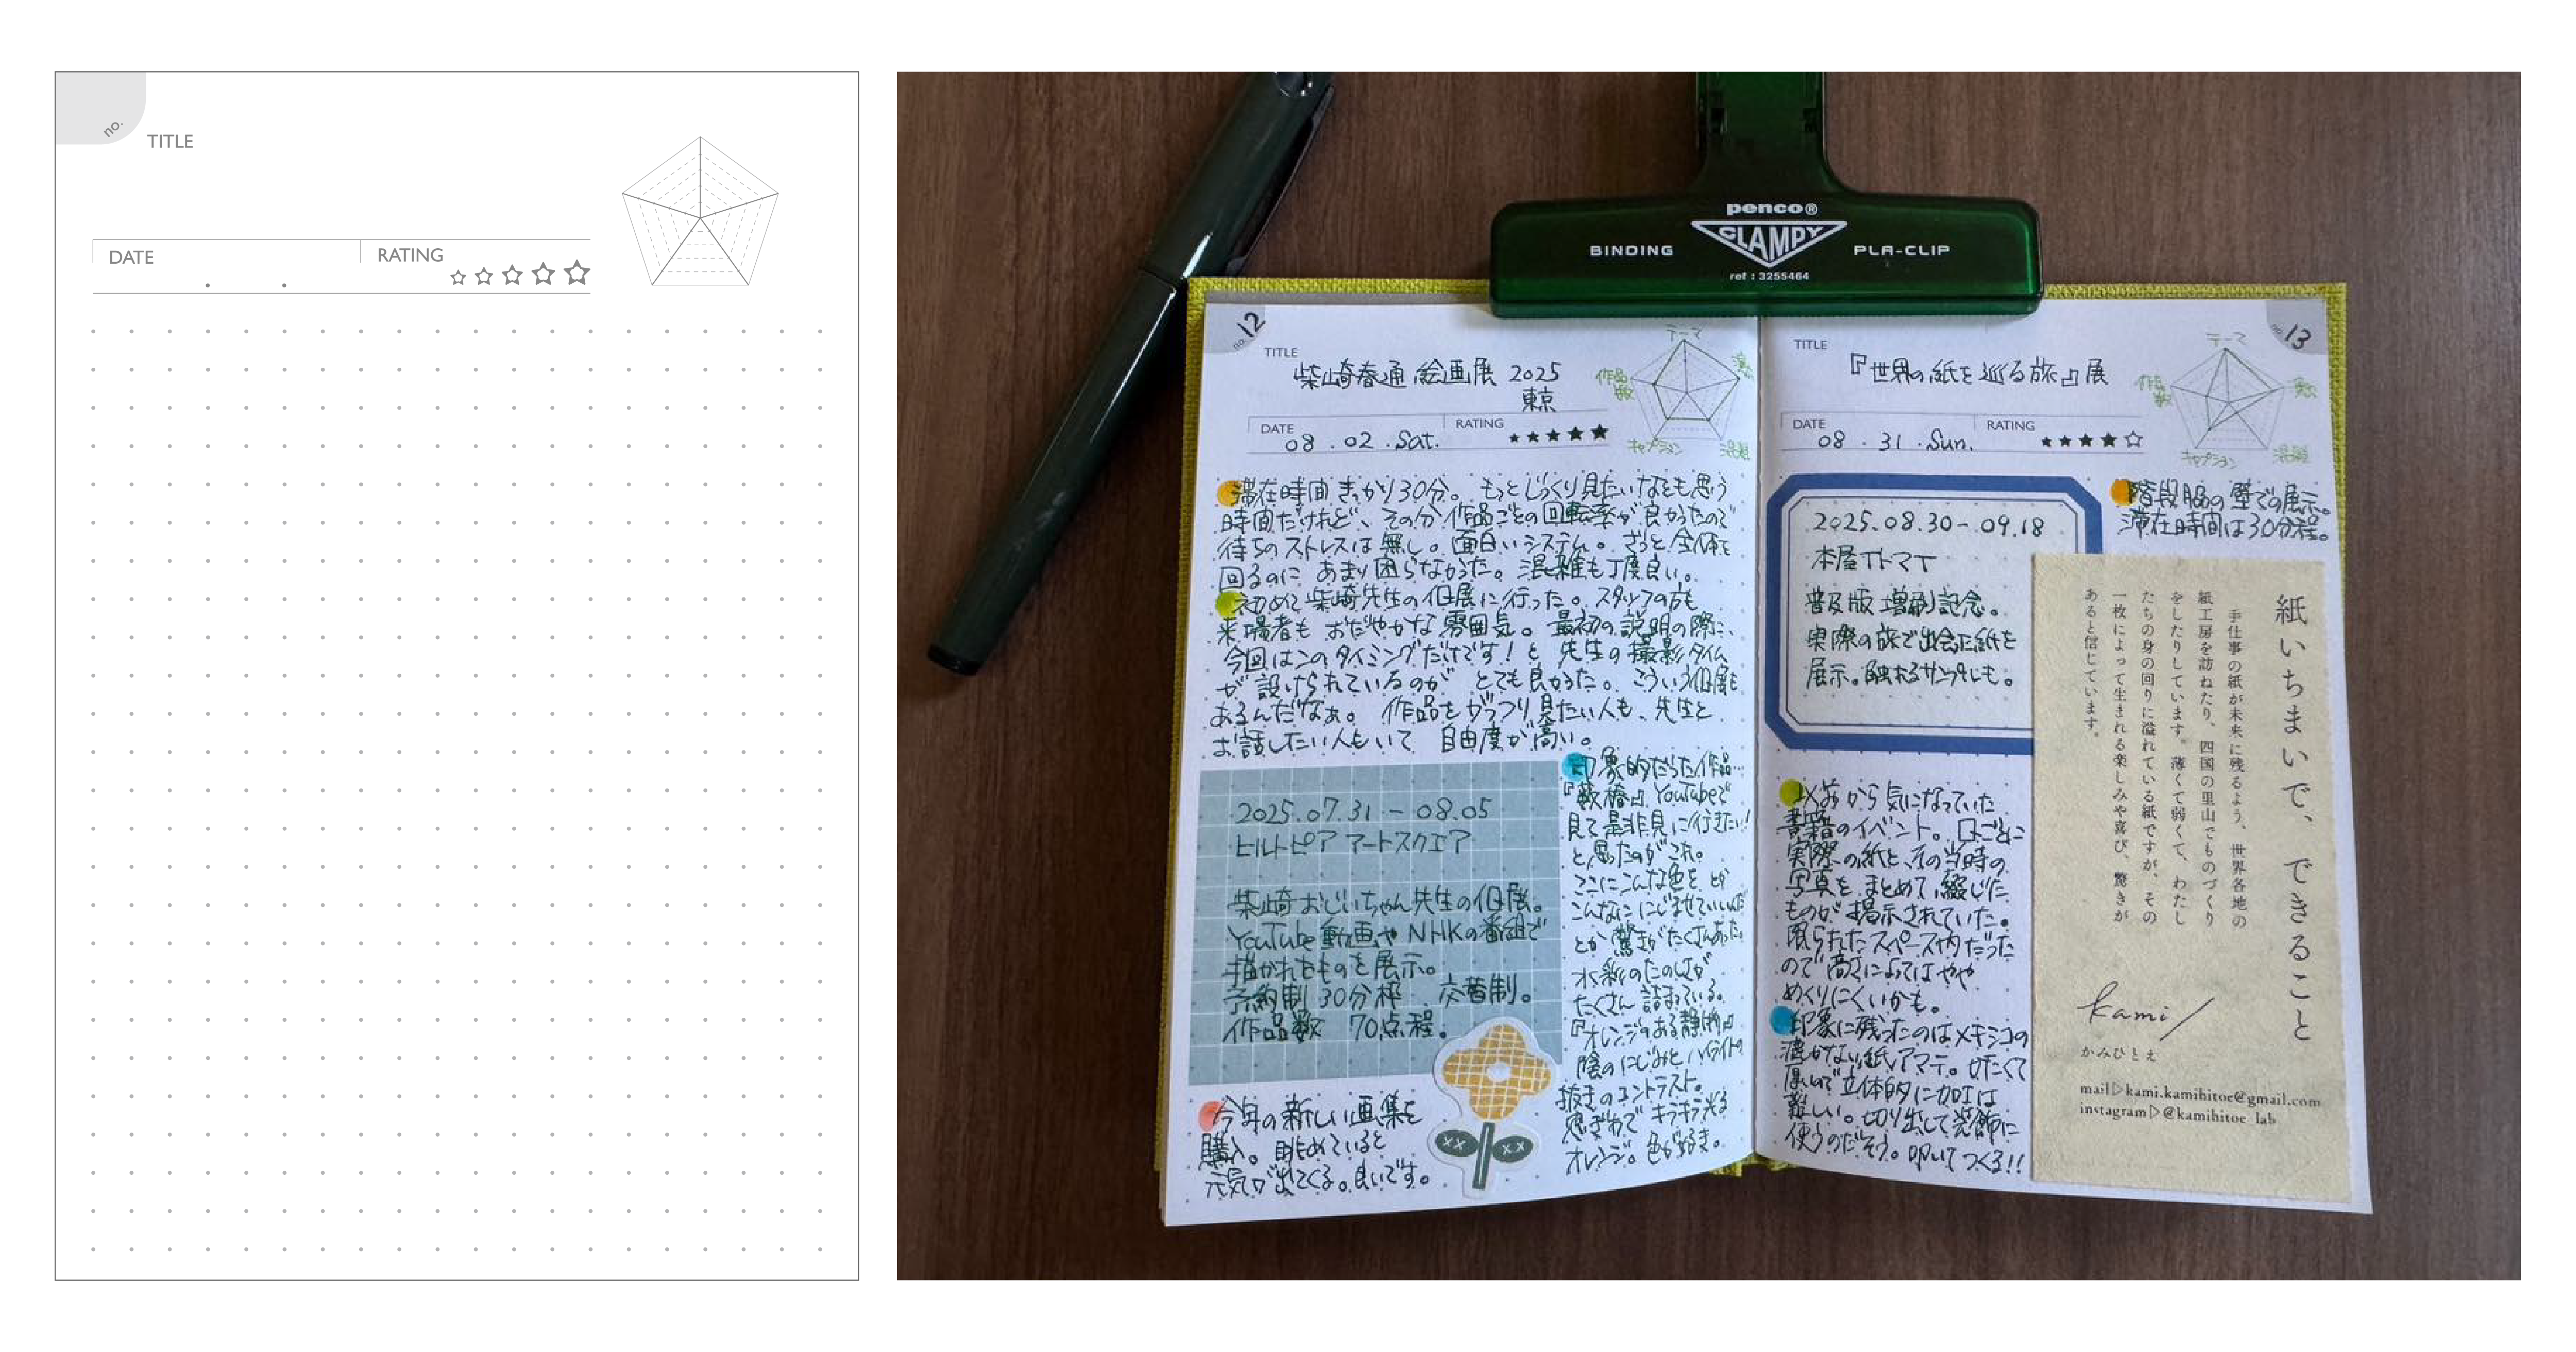 no.
TITLE
DATE
RATING
penco®
CLAMPY
BINDING
PLA-CLIP
ref : 3255464
no. 12
TITLE
柴崎春通 絵画展 2025
東京
テーマ
作品
数
キャプション
混雑
DATE
08 . 02 . Sat.
RATING
滞在時間きっかり30分。もっとじっくり見たいなとも思う
時間だけれど、その分作品ごとの回転率が良かったので
待ちのストレスは無し。面白いシステム。ざっと全体を
回るのに あまり困らなかった。混雑も丁度良い。
初めて柴崎先生の個展に行った。スタッフの方も
来場者も おだやかな雰囲気。最初の説明の際に、
今回はこのタイミングだけです！と 先生の撮影タイム
が設けられているのが とても良かった。こういう個展も
あるんだなぁ。 作品をがっつり見たい人も、先生と
お話したい人もいて 自由度が高い。
2025.07.31 - 08.05
ヒルトピア アートスクエア
柴崎おじいちゃん先生の個展。
YouTube動画や NHKの番組で
描かれたものを展示。
予約制 30分枠 交替制。
作品数 70点程。
印象的だった作品…
YouTubeで
見て是非見に行きたい！
と思ったのがこれ。
ここにこんな色を とか
こんなに にじませていいんだ
とか 驚きがたくさんあった。
水彩のたのしさが
たくさん 詰まっている。
『オレンジのある静物』
陰のにじみと ハイライトの
抜きのコントラスト。
キラキラ光る
オレンジ。色が好き。
今年の新しい画集を
購入。眺めていると
元気が出てくる。良いです。
no. 13
TITLE
『世界の紙を巡る旅』展
テーマ
作品
数
キャプション
混雑
DATE
08 . 31 . Sun.
RATING
階段脇の壁での展示。
滞在時間は30分程。
2025.08.30 - 09.18
本屋 TトマT
普及版 増刷記念。
実際の旅で出会った紙を
展示。触れるサンプルも。
以前から気になっていた
書籍のイベント。国ごとに
実際の紙と、その当時の
写真を まとめて 綴じた
ものが 掲示されていた。
限られたスペース内だった
ので 高さによっては やや
めくりにくいかも。
印象に残ったのはメキシコの
漉かない紙、アマテ。かたくて
厚いので 立体的に加工は
難しい。切り出して装飾に
使うのだそう。叩いてつくる!!
紙いちまいで、できること
手仕事の紙が未来に残るよう、世界各地の
紙工房を訪ねたり、四国の里山でものづくり
をしたりしています。薄くて弱くて、わたし
たちの身の回りに溢れている紙ですが、その
一枚によって生まれる楽しみや喜び、驚きが
あると信じています。
kami/
かみひとえ
mail▷kami.kamihitoe@gmail.com
instagram▷@kamihitoe_lab